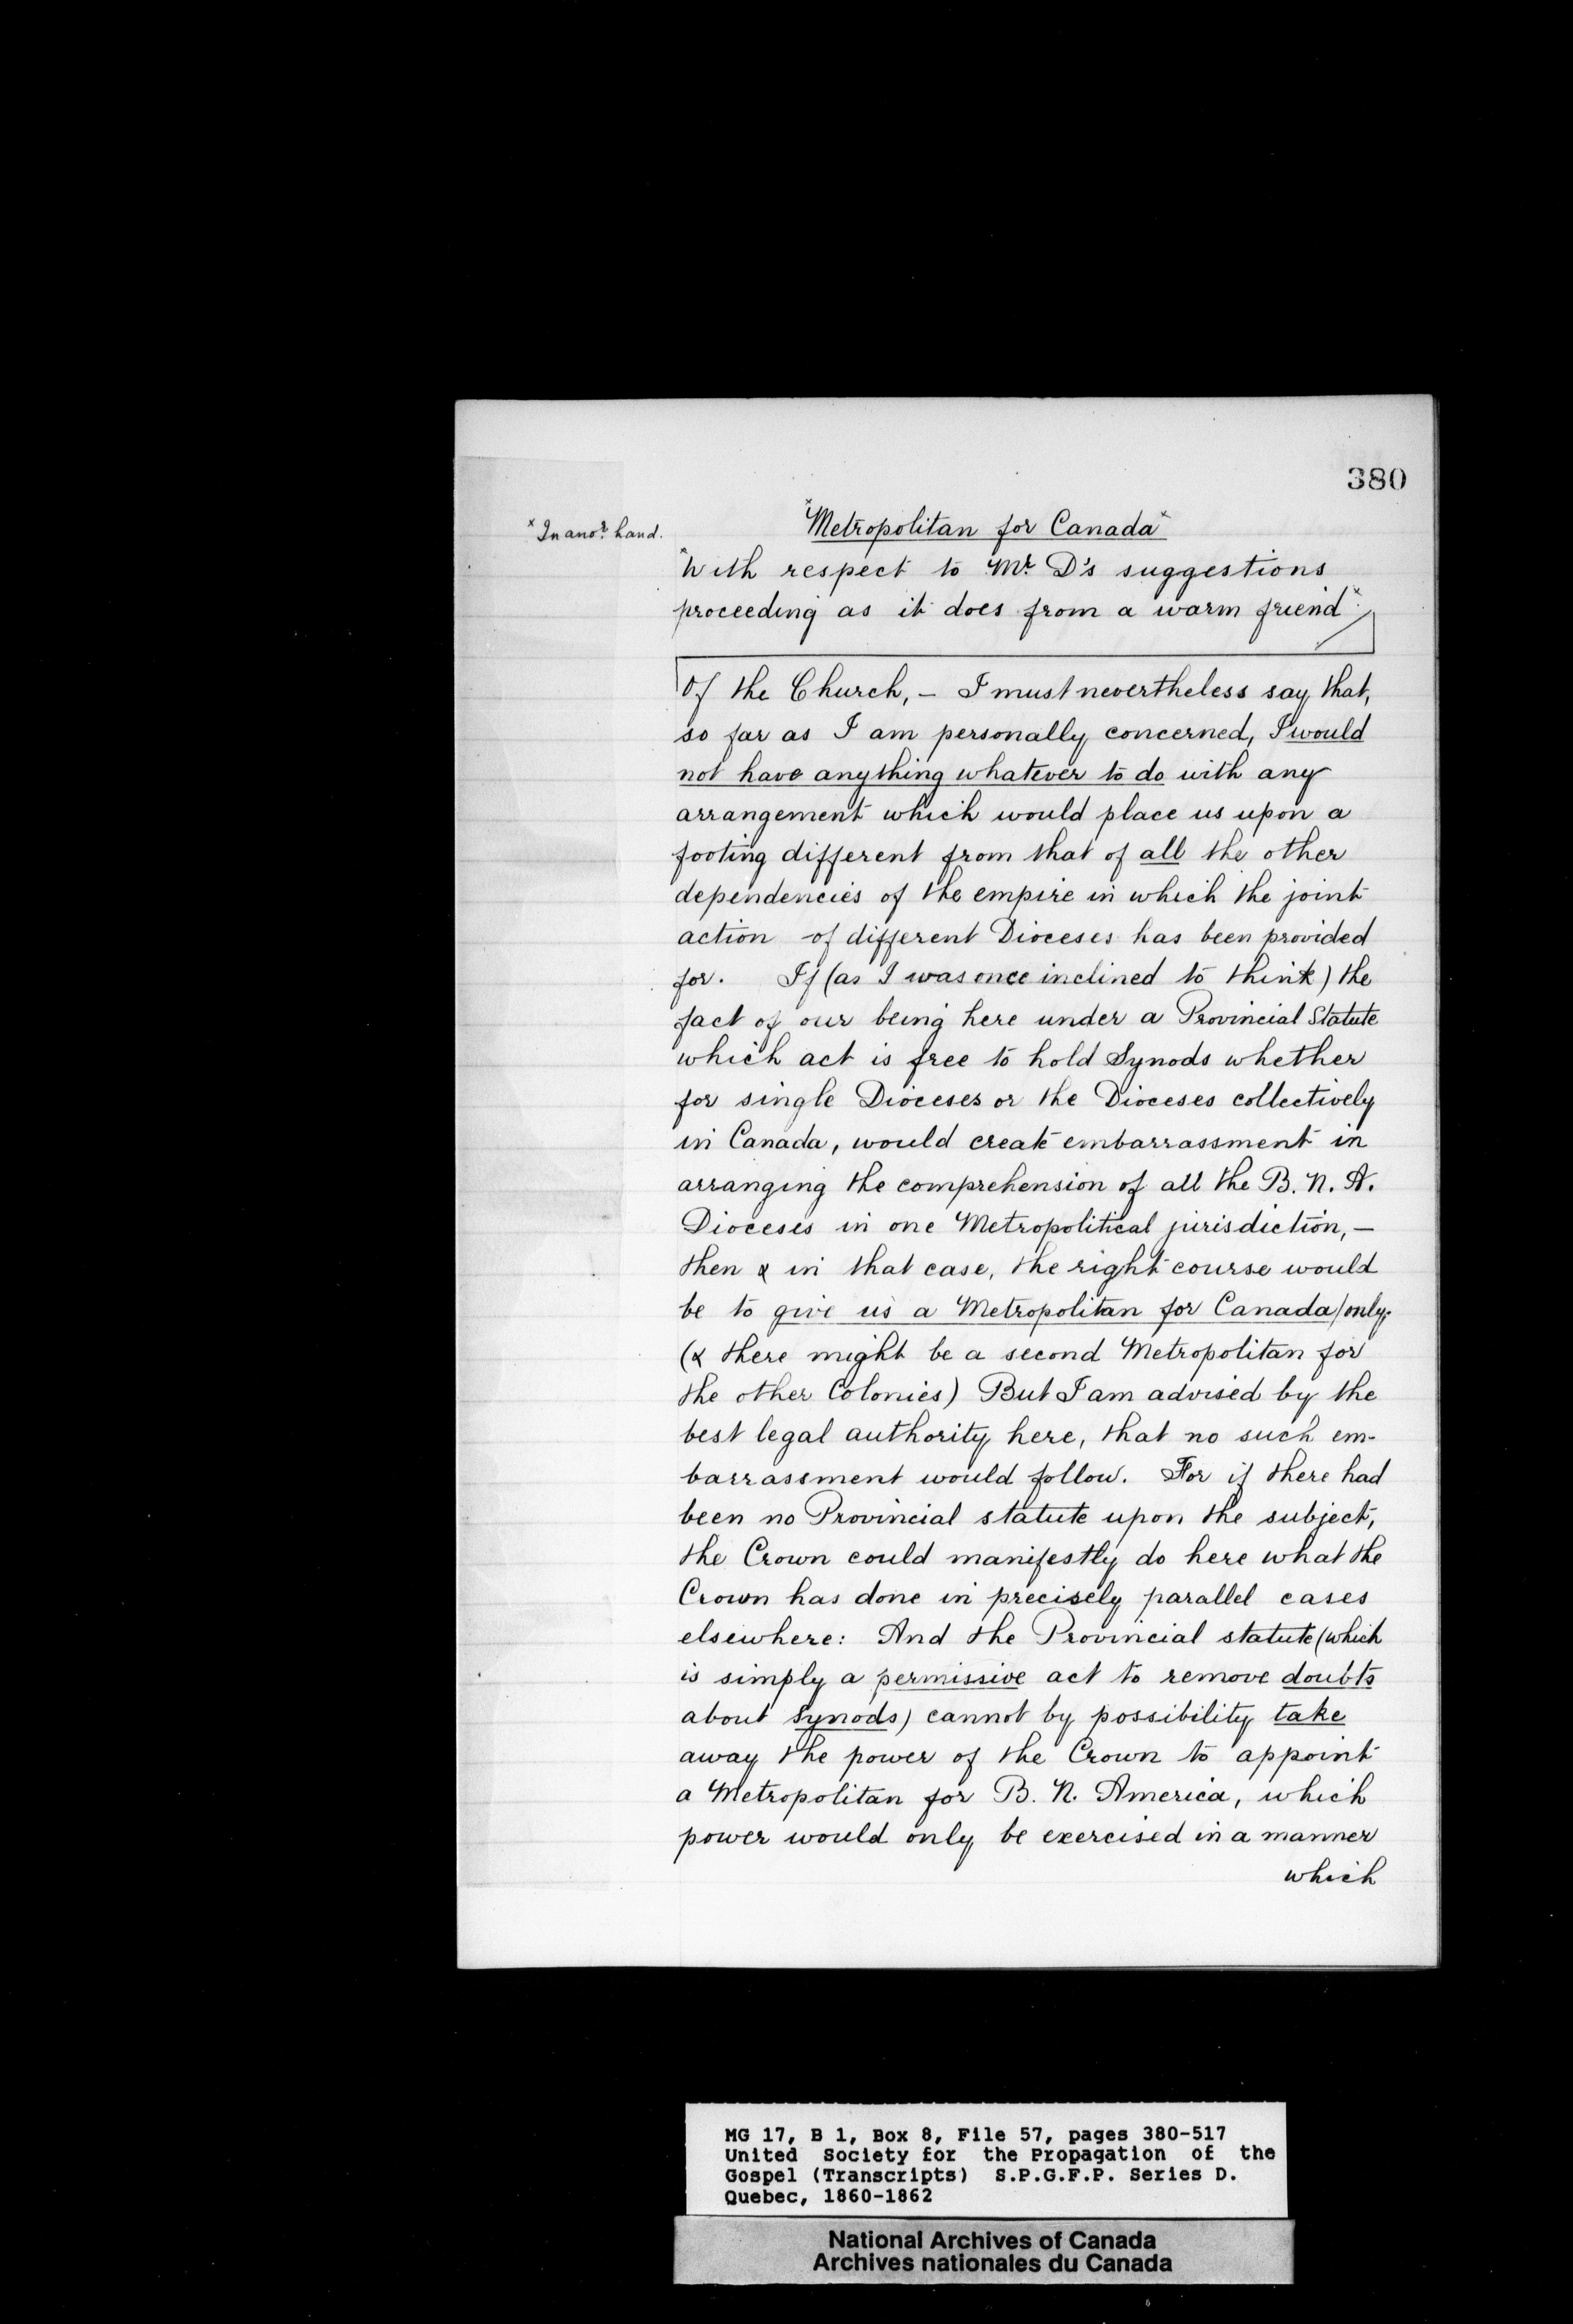 380
ˣMetropolitan for Canadaˣ
ˣ In anoʳ. hand.
ˣWith respect to Mʳ. D's suggestions
proceeding as it does from a warm friendˣ
of the Church, — I must nevertheless say that,
so far as I am personally concerned, I would
not have anything whatever to do with any
arrangement which would place us upon a
footing different from that of all the other
dependencies of the empire in which the joint
action of different Dioceses has been provided
for. If (as I was once inclined to think) the
fact of our being here under a Provincial Statute
which act is free to hold Synods whether
for single Dioceses or the Dioceses collectively
in Canada, would create embarrassment in
arranging the comprehension of all the B. N. A.
Dioceses in one Metropolitical jurisdiction, —
then & in that case, the right course would
be to give us a Metropolitan for Canada/only.
(& there might be a second Metropolitan for
the other Colonies) But I am advised by the
best legal authority here, that no such em-
barrassment would follow. For if there had
been no Provincial statute upon the subject,
the Crown could manifestly do here what the
Crown has done in precisely parallel cases
elsewhere: And the Provincial statute (which
is simply a permissive act to remove doubts
about Synods) cannot by possibility take
away the power of the Crown to appoint
a Metropolitan for B. N. America, which
power would only be exercised in a manner
which
MG 17, B 1, Box 8, File 57, pages 380-517
United Society for the Propagation of the
Gospel (Transcripts) S.P.G.F.P. Series D.
Quebec, 1860-1862
National Archives of Canada
Archives nationales du Canada